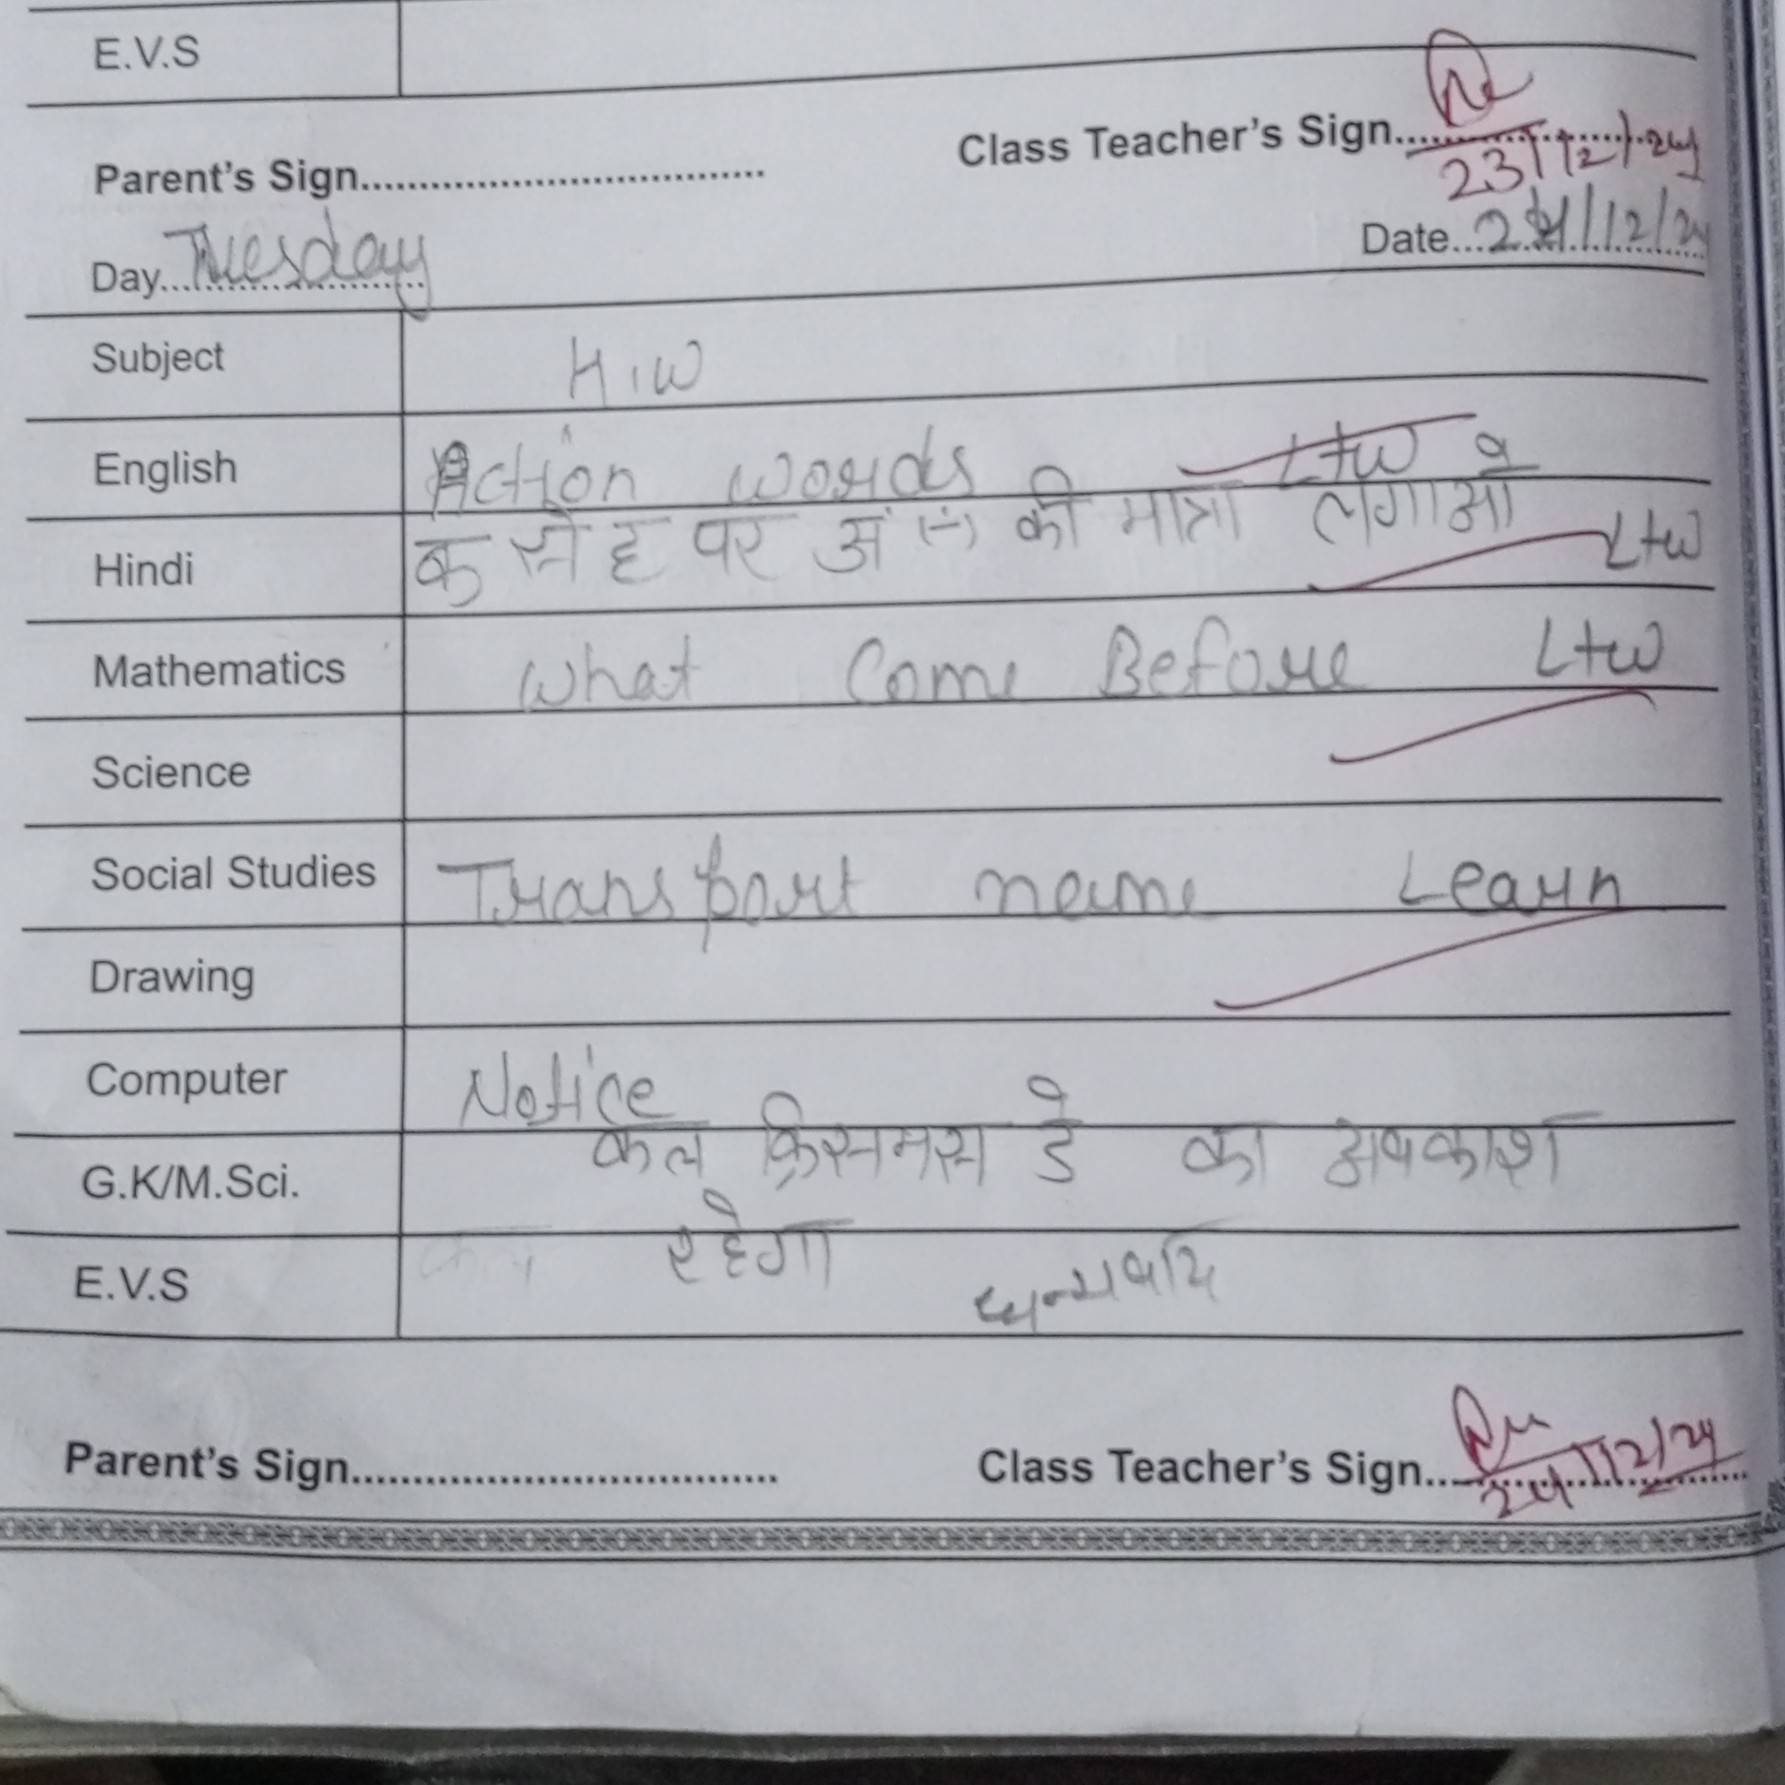 E.V.S
Parent's Sign.................................. Class Teacher's Sign.......................
23/12/24
Day...Tuesday Date...24/12/24
Subject H.W
English Action words Ltw
Hindi क से ह पर अं (ं) की मात्रा लगाओ Ltw
Mathematics What Come Before Ltw
Science
Social Studies Transport name Learn
Drawing
Computer Notice
G.K/M.Sci. कल क्रिसमस डे का अवकाश
E.V.S रहेगा धन्यवाद
Parent's Sign................................... Class Teacher's Sign..........................
24/12/24